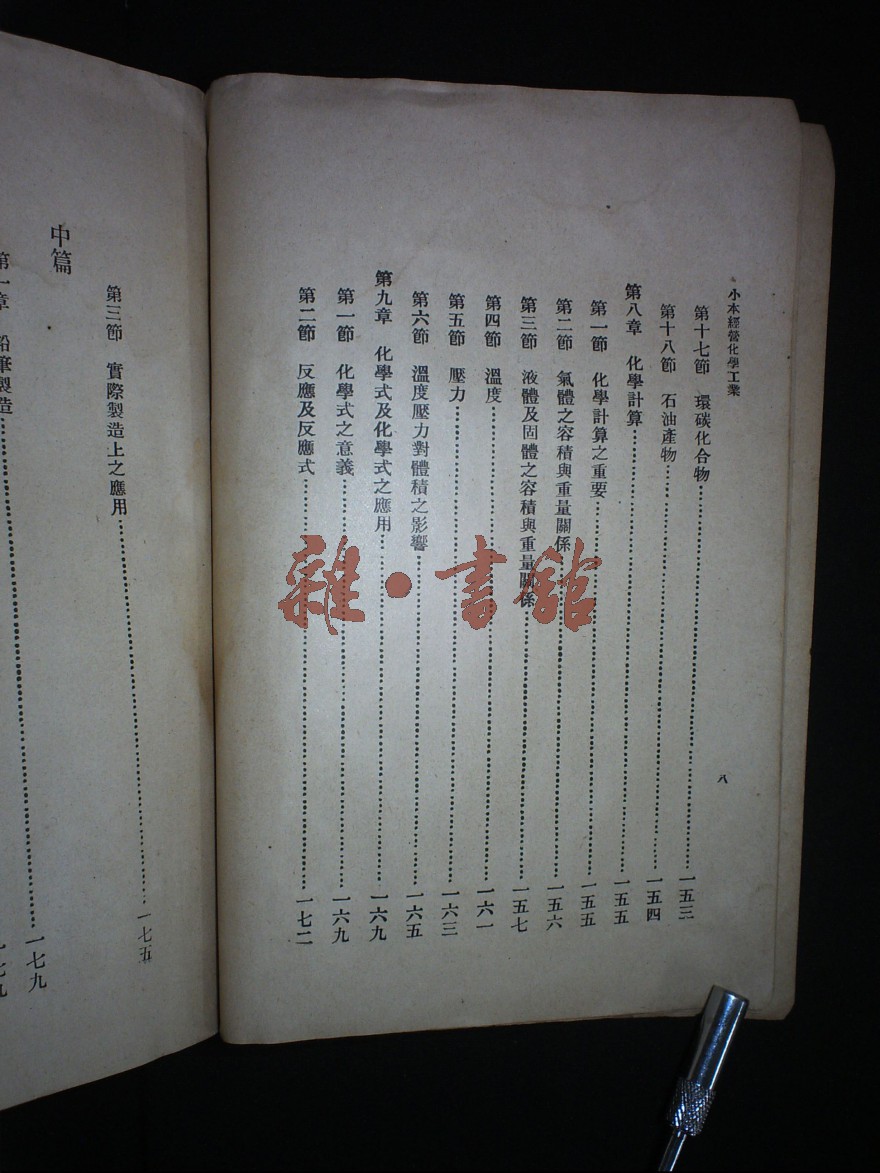 小本經營化學工業
八
第十七節　環碳化合物……一五三
第十八節　石油產物……一五四
第八章　化學計算……一五五
第一節　化學計算之重要……一五五
第二節　氣體之容積與重量關係……一五六
第三節　液體及固體之容積與重量關係……一五七
第四節　溫度……一六一
第五節　壓力……一六三
第六節　溫度壓力對體積之影響……一六五
第九章　化學式及化學式之應用……一六九
第一節　化學式之意義……一六九
第二節　反應及反應式……一七二
第三節　實際製造上之應用……一七五
中篇
第一章　鉛筆製造……一七九
一七九
雜·書館